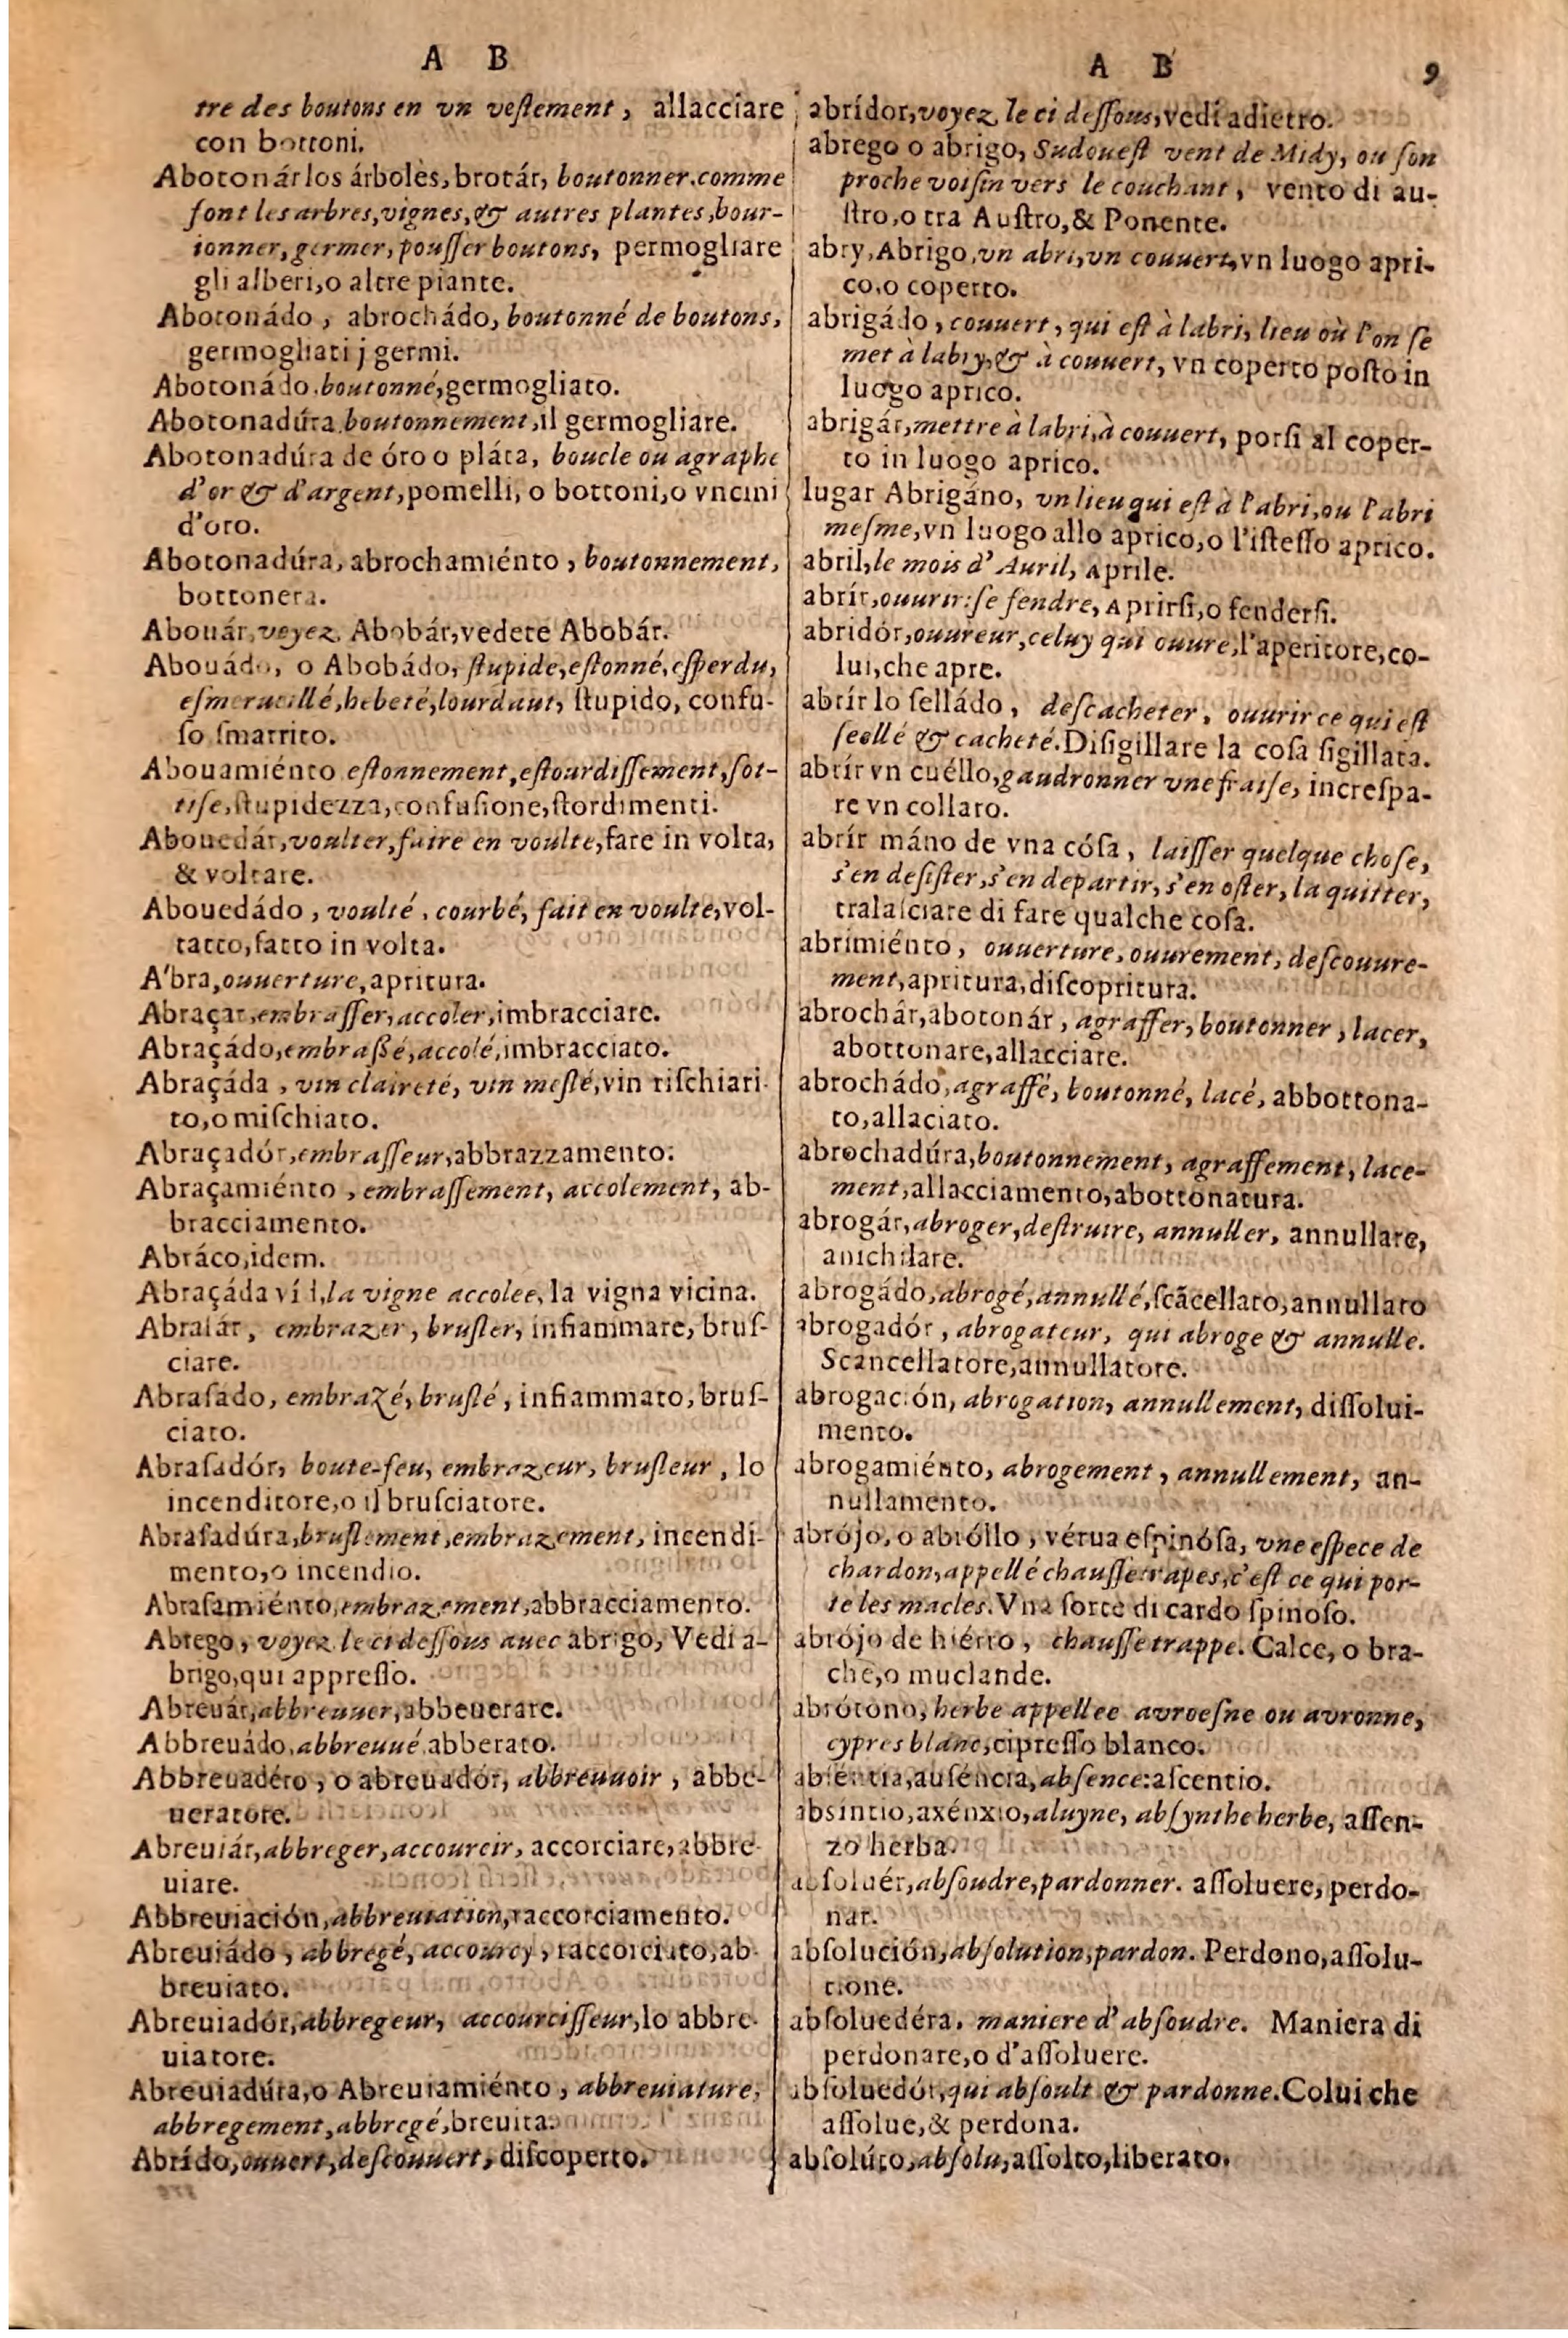 A B
tre des boutons en vn veſtement, allacciare
con bottoni.
Abotonár los árboles, brotár, boutonner. comme
font les arbres, vignes, & autres plantes, bour-
ionner, germer, pouſſer boutons, permogliare
gli alberi, o altre piante.
Abotonádo, abrochádo, boutonné de boutons,
germogliati j germi.
Abotonádo. boutonné, germogliato.
Abotonadúra. boutonnement, il germogliare.
Abotonadúra de óro o pláta, boucle ou agraphe
d'or & d'argent, pomelli, o bottoni, o vncini
d'oro.
Abotonadúra, abrochamiénto, boutonnement,
bottonera.
Abouár, voyez Abobár, vedete Abobár.
Abouádo, o Abobádo, ſtupide, eſtonné, eſperdu,
eſmerueillé, hebeté, lourdaut, ſtupido, confu-
ſo ſmarrito.
Abouamiénto. eſtonnement, eſtourdiſſement, ſot-
tiſe, ſtupidezza, confuſione, ſtordimenti.
Abouedár, voulter, faire en voulte, fare in volta,
& voltare.
Abouedádo, voulté, courbé, fait en voulte, vol-
tatto, fatto in volta.
A'bra, ouuerture, apritura.
Abraçar, embraſſer, accoler, imbracciare.
Abraçádo, embraßé, accolé, imbracciato.
Abraçáda, vin claireté, vin meſlé, vin riſchiari-
to, o miſchiato.
Abraçadór, embraſſeur, abbrazzamento:
Abraçamiénto, embraſſement, accolement, ab-
bracciamento.
Abráco, idem.
Abraçáda la vigne accolee, la vigna vicina.
Abraſár, embrazer, bruſler, infiammare, bruſ-
ciare.
Abraſado, embrazé, bruſlé, infiammato, bruſ-
ciato.
Abraſadór, boute-feu, embrazeur, bruſleur, lo
incenditore, o il bruſciatore.
Abraſadúra, bruſlement, embrazement, incendi-
mento, o incendio.
Abraſamiénto, embrazement, abbracciamento.
Abrego, voyez le ci deſſous auec abrigo, Vedi a-
brigo, qui appreſſo.
Abreuár, abbreuuer, abbeuerare.
Abbreuádo, abbreuué, abberato.
Abbreuadéro, o abreuadór, abbreuuoir, abbe-
ueratore.
Abreuiár, abbreger, accourcir, accorciare, abbre-
uiare.
Abbreuiación, abbreuiation, raccorciamento.
Abreuiádo, abbregé, accourcy, raccorciato, ab-
breuiato.
Abreuiadór, abbregeur, accourciſſeur, lo abbre-
uiatore.
Abreuiadúra, o Abreuiamiénto, abbreuiature,
abbregement, abbregé, breuita.
Abrído, ouuert, deſcouuert, diſcoperto.
A B 9
abrídor, voyez le ci deſſous, vedi adietro.
abrego o abrigo, Sudoueſt vent de Midy, ou ſon
proche voiſin vers le couchant, vento di au-
ſtro, o tra Auſtro, & Ponente.
abry, Abrigo, vn abri, vn couuert, vn luogo apri-
co, o coperto.
abrigádo, couuert, qui eſt à labri, lieu où l'on ſe
met à labry, & à couuert, vn coperto poſto in
luogo aprico.
abrigár, mettre à labri, à couuert, porſi al coper-
to in luogo aprico.
lugar Abrigáno, vn lieu qui eſt à l'abri, ou l'abri
meſme, vn luogo allo aprico, o l'iſteſſo aprico.
abril, le mois d'Auril, Aprile.
abrír, ouurir: ſe fendre, Aprirſi, o fenderſi.
abridór, ouureur, celuy qui ouure, l'aperitore, co-
lui, che apre.
abrír lo ſelládo, deſcacheter, ouurir ce qui eſt
ſeellé & cacheté. Diſigillare la coſa ſigillata.
abrír vn cuéllo, gaudronner vne fraiſe, increſpa-
re vn collaro.
abrír máno de vna cóſa, laiſſer quelque choſe,
s'en deſiſter, s'en departir, s'en oſter, la quitter,
tralaſciare di fare qualche coſa.
abrimiénto, ouuerture, ouurement, deſcouure-
ment, apritura, diſcopritura.
abrochár, abotonár, agraffer, boutonner, lacer,
abottonare, allacciare.
abrochádo, agraffé, boutonné, lacé, abbottona-
to, allaciato.
abrochadúra, boutonnement, agraffement, lace-
ment, allacciamento, abottonatura.
abrogár, abroger, deſtruire, annuller, annullare,
anichilare.
abrogádo, abrogé, annullé, ſcãcellato, annullato
abrogadór, abrogateur, qui abroge & annulle.
Scancellatore, annullatore.
abrogación, abrogation, annullement, diſſolui-
mento.
abrogamiénto, abrogement, annullement, an-
nullamento.
abrójo, o abróllo, yérua eſpinóſa, vne eſpece de
chardon, appellé chauſſetrapes, c'eſt ce qui por-
te les macles. Vna ſorte di cardo ſpinoſo.
abrójo de hiérro, chauſſetrappe. Calce, o bra-
che, o muclande.
abrótono, herbe appellee avroeſne ou avronne,
cypres blanc, cipreſſo blanco.
abſéntia, auſéncia, abſence: aſcentio.
absíntio, axénxio, aluyne, abſynthe herbe, aſſen-
zo herba.
abſoluér, abſoudre, pardonner. aſſoluere, perdo-
nar.
abſolución, abſolution, pardon. Perdono, aſſolu-
tione.
abſoluedéra. maniere d'abſoudre. Maniera di
perdonare, o d'aſſoluere.
abſoluedór, qui abſoult & pardonne. Colui che
aſſolue, & perdona.
abſolúto, abſolu, aſſolto, liberato.